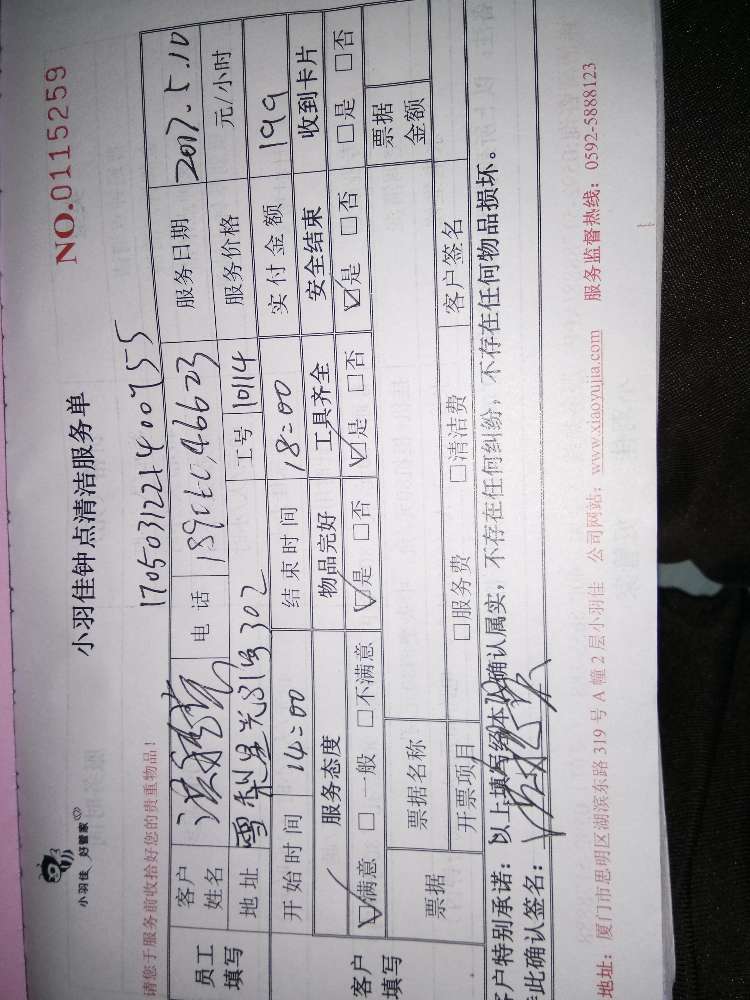 小羽佳 好管家
小羽佳钟点清洁服务单
NO.0115259
请您于服务前收拾好您的贵重物品！
170503122140075
员工填写 客户姓名 电话 服务日期 2017.5.10
地址 302 工号 10114 服务价格 元/小时
客户填写 开始时间 14:00 结束时间 18:00 实付金额 199
服务态度 物品完好 工具齐全 安全结束 收到卡片
☑满意 □一般 □不满意 ☑是 □否 ☑是 □否 ☑是 □否 □是 □否
票据 票据名称 票据金额
开票项目 □服务费 □清洁费 客户签名
客户特别承诺：以上填写经本人确认属实，不存在任何纠纷，不存在任何物品损坏。
此确认签名：
地址：厦门市思明区湖滨东路319号A幢2层小羽佳 公司网站：www.xiaoyujia.com 服务监督热线：0592-5888123